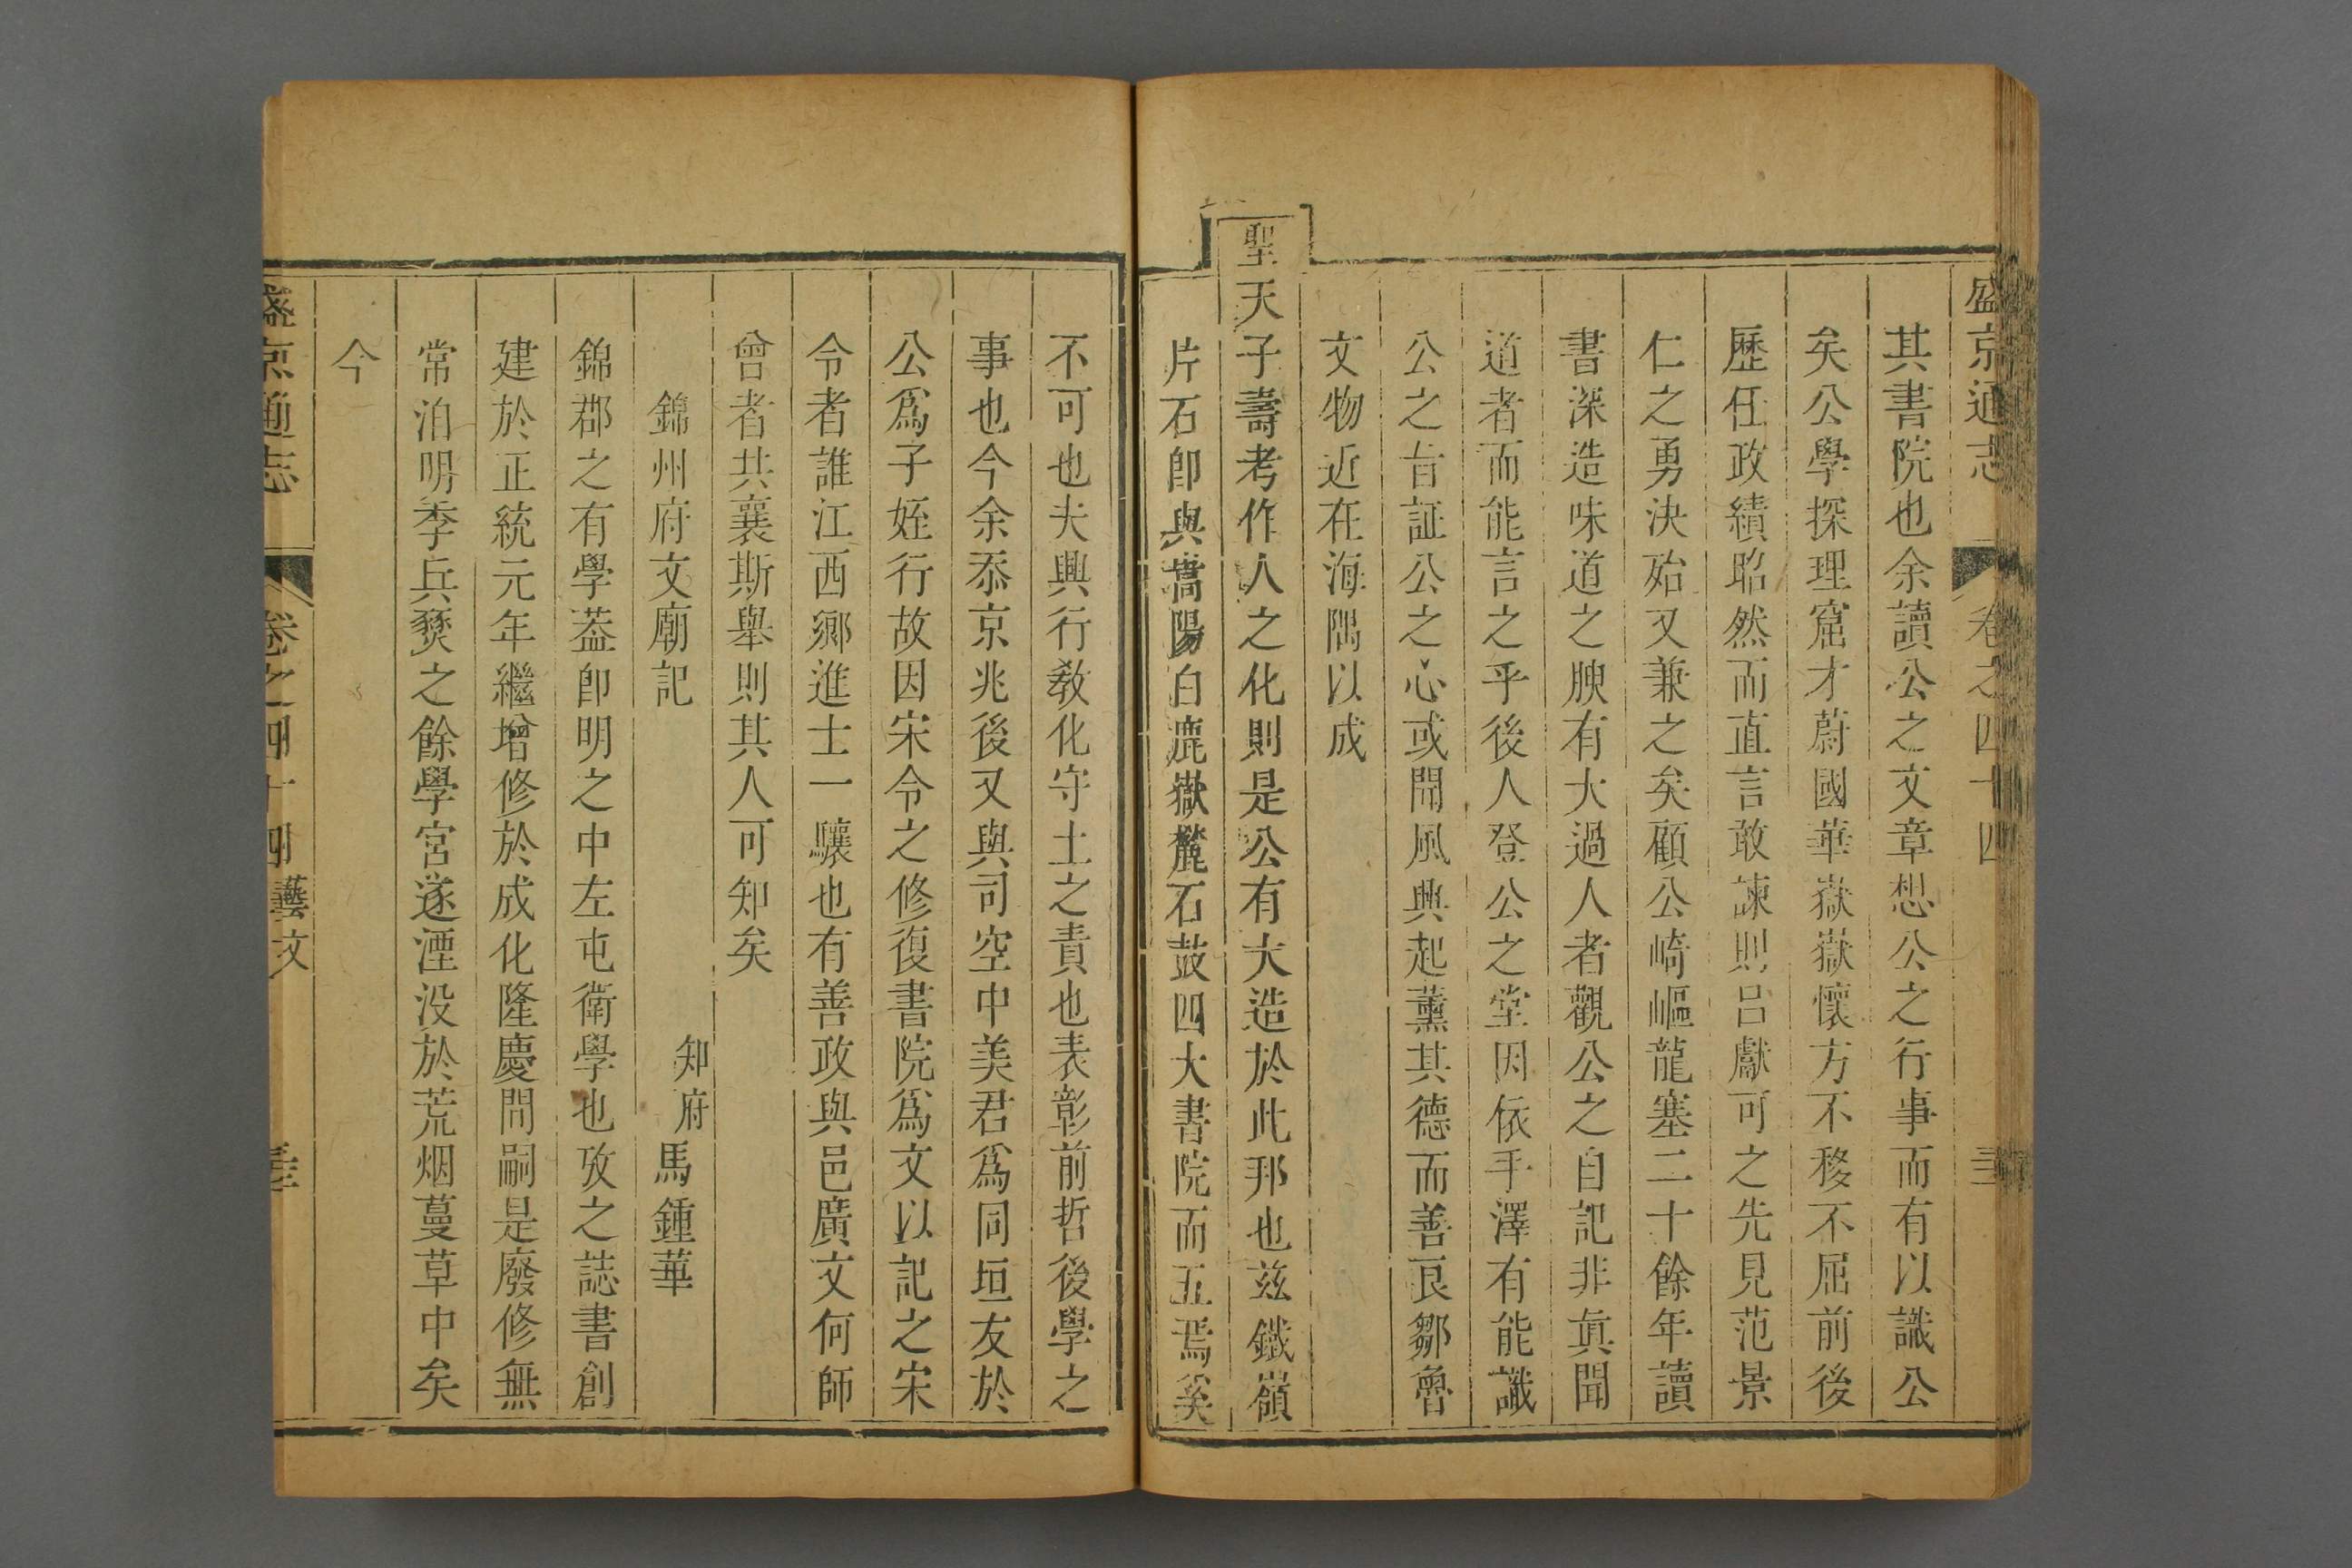 盛京通志 卷之四十四
其書院也余讀公之文章想公之行事而有以識公
矣公學探理窟才蔚國華嶽嶽懷方不移不屈前後
歷任政績昭然而直言敢諫則呂獻可之先見范景
仁之勇決殆又兼之矣顧公崎嶇龍塞二十餘年讀
書深造味道之腴有大過人者觀公之自記非眞聞
道者而能言之乎後人登公之堂因依手澤有能識
公之㫖証公之心或聞風興起薰其德而善良鄒魯
文物近在海隅以成
聖天子壽考作人之化則是公有大造於此邦也兹鐵嶺
片石卽與嵩陽白鹿嶽麓石鼓四大書院而五焉奚
不可也夫興行敎化守土之責也表彰前哲後學之
事也今余忝京兆後又與司空中美君爲同垣友於
公爲子姪行故因宋令之修復書院爲文以記之宋
令者誰江西鄉進士一驤也有善政與邑廣文何師
曾者共襄斯舉則其人可知矣
錦州府文廟記 知府馬鍾華
錦郡之有學葢卽明之中左屯衛學也攷之誌書創
建於正統元年繼增修於成化隆慶問嗣是廢修無
常洎明季兵燹之餘學宮遂湮没於荒烟蔓草中矣
今
盛京通志 卷之四十四 藝文